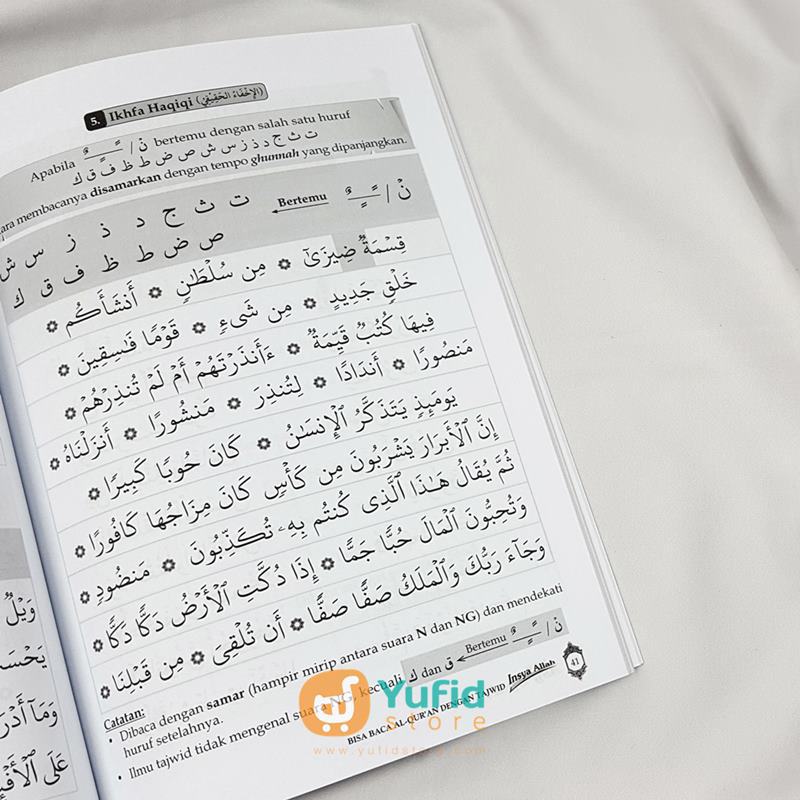 5. Ikhfa Haqiqi (الإِخْفَاءُ الحَقِيْقِيّ)
Apabila نْ / ـًـٍـٌ bertemu dengan salah satu huruf
ت ث ج د ذ ز س ش ص ض ط ظ ف ق ك
membacanya disamarkan dengan tempo ghunnah yang dipanjangkan.
نْ / ـًـٍـٌ Bertemu ت ث ج د ذ ز س ش
ص ض ط ظ ف ق ك
قِسْمَةٌ ضِيزَىٰٓ ۞ مِن سُلْطَـٰنٍ ۞ أَنشَأَكُم ۞
خَلْقٍ جَدِيدٍ ۞ مِن شَىْءٍ ۞ قَوْمًا فَـٰسِقِينَ ۞
فِيهَا كُتُبٌ قَيِّمَةٌ ۞ ءَأَنذَرْتَهُمْ أَمْ لَمْ تُنذِرْهُمْ ۞
مَنصُورًا ۞ أَندَادًا ۞ لِتُنذِرَ ۞ مَنشُورًا ۞ أَنزَلْنَاهُ ۞
يَوْمَئِذٍ يَتَذَكَّرُ ٱلْإِنسَـٰنُ ۞ كَانَ حُوبًا كَبِيرًا ۞
إِنَّ ٱلْأَبْرَارَ يَشْرَبُونَ مِن كَأْسٍ كَانَ مِزَاجُهَا كَافُورًا ۞
ثُمَّ يُقَالُ هَـٰذَا ٱلَّذِى كُنتُم بِهِۦ تُكَذِّبُونَ ۞ مَنضُودٍ ۞
وَتُحِبُّونَ ٱلْمَالَ حُبًّا جَمًّا ۞ إِذَا دُكَّتِ ٱلْأَرْضُ دَكًّا دَكًّا ۞
وَجَآءَ رَبُّكَ وَٱلْمَلَكُ صَفًّا صَفًّا ۞ أَن تُلْقِىَ ۞ مِن قَبْلِنَا ۞
Catatan:
• Dibaca dengan samar (hampir mirip antara suara N dan NG) dan mendekati
huruf setelahnya.
• Ilmu tajwid tidak mengenal suara NG, kecuali ك dan ق Bertemu نْ / ـًـٍـٌ
BISA BACA AL-QUR'AN DENGAN TAJWID Insya Allah 41
وَيْلٌ
يَحْسَ
وَمَآ أَدْرَ
عَلَى ٱلْأَفْـِٔ
Yufid
store
www.yufidstore.com